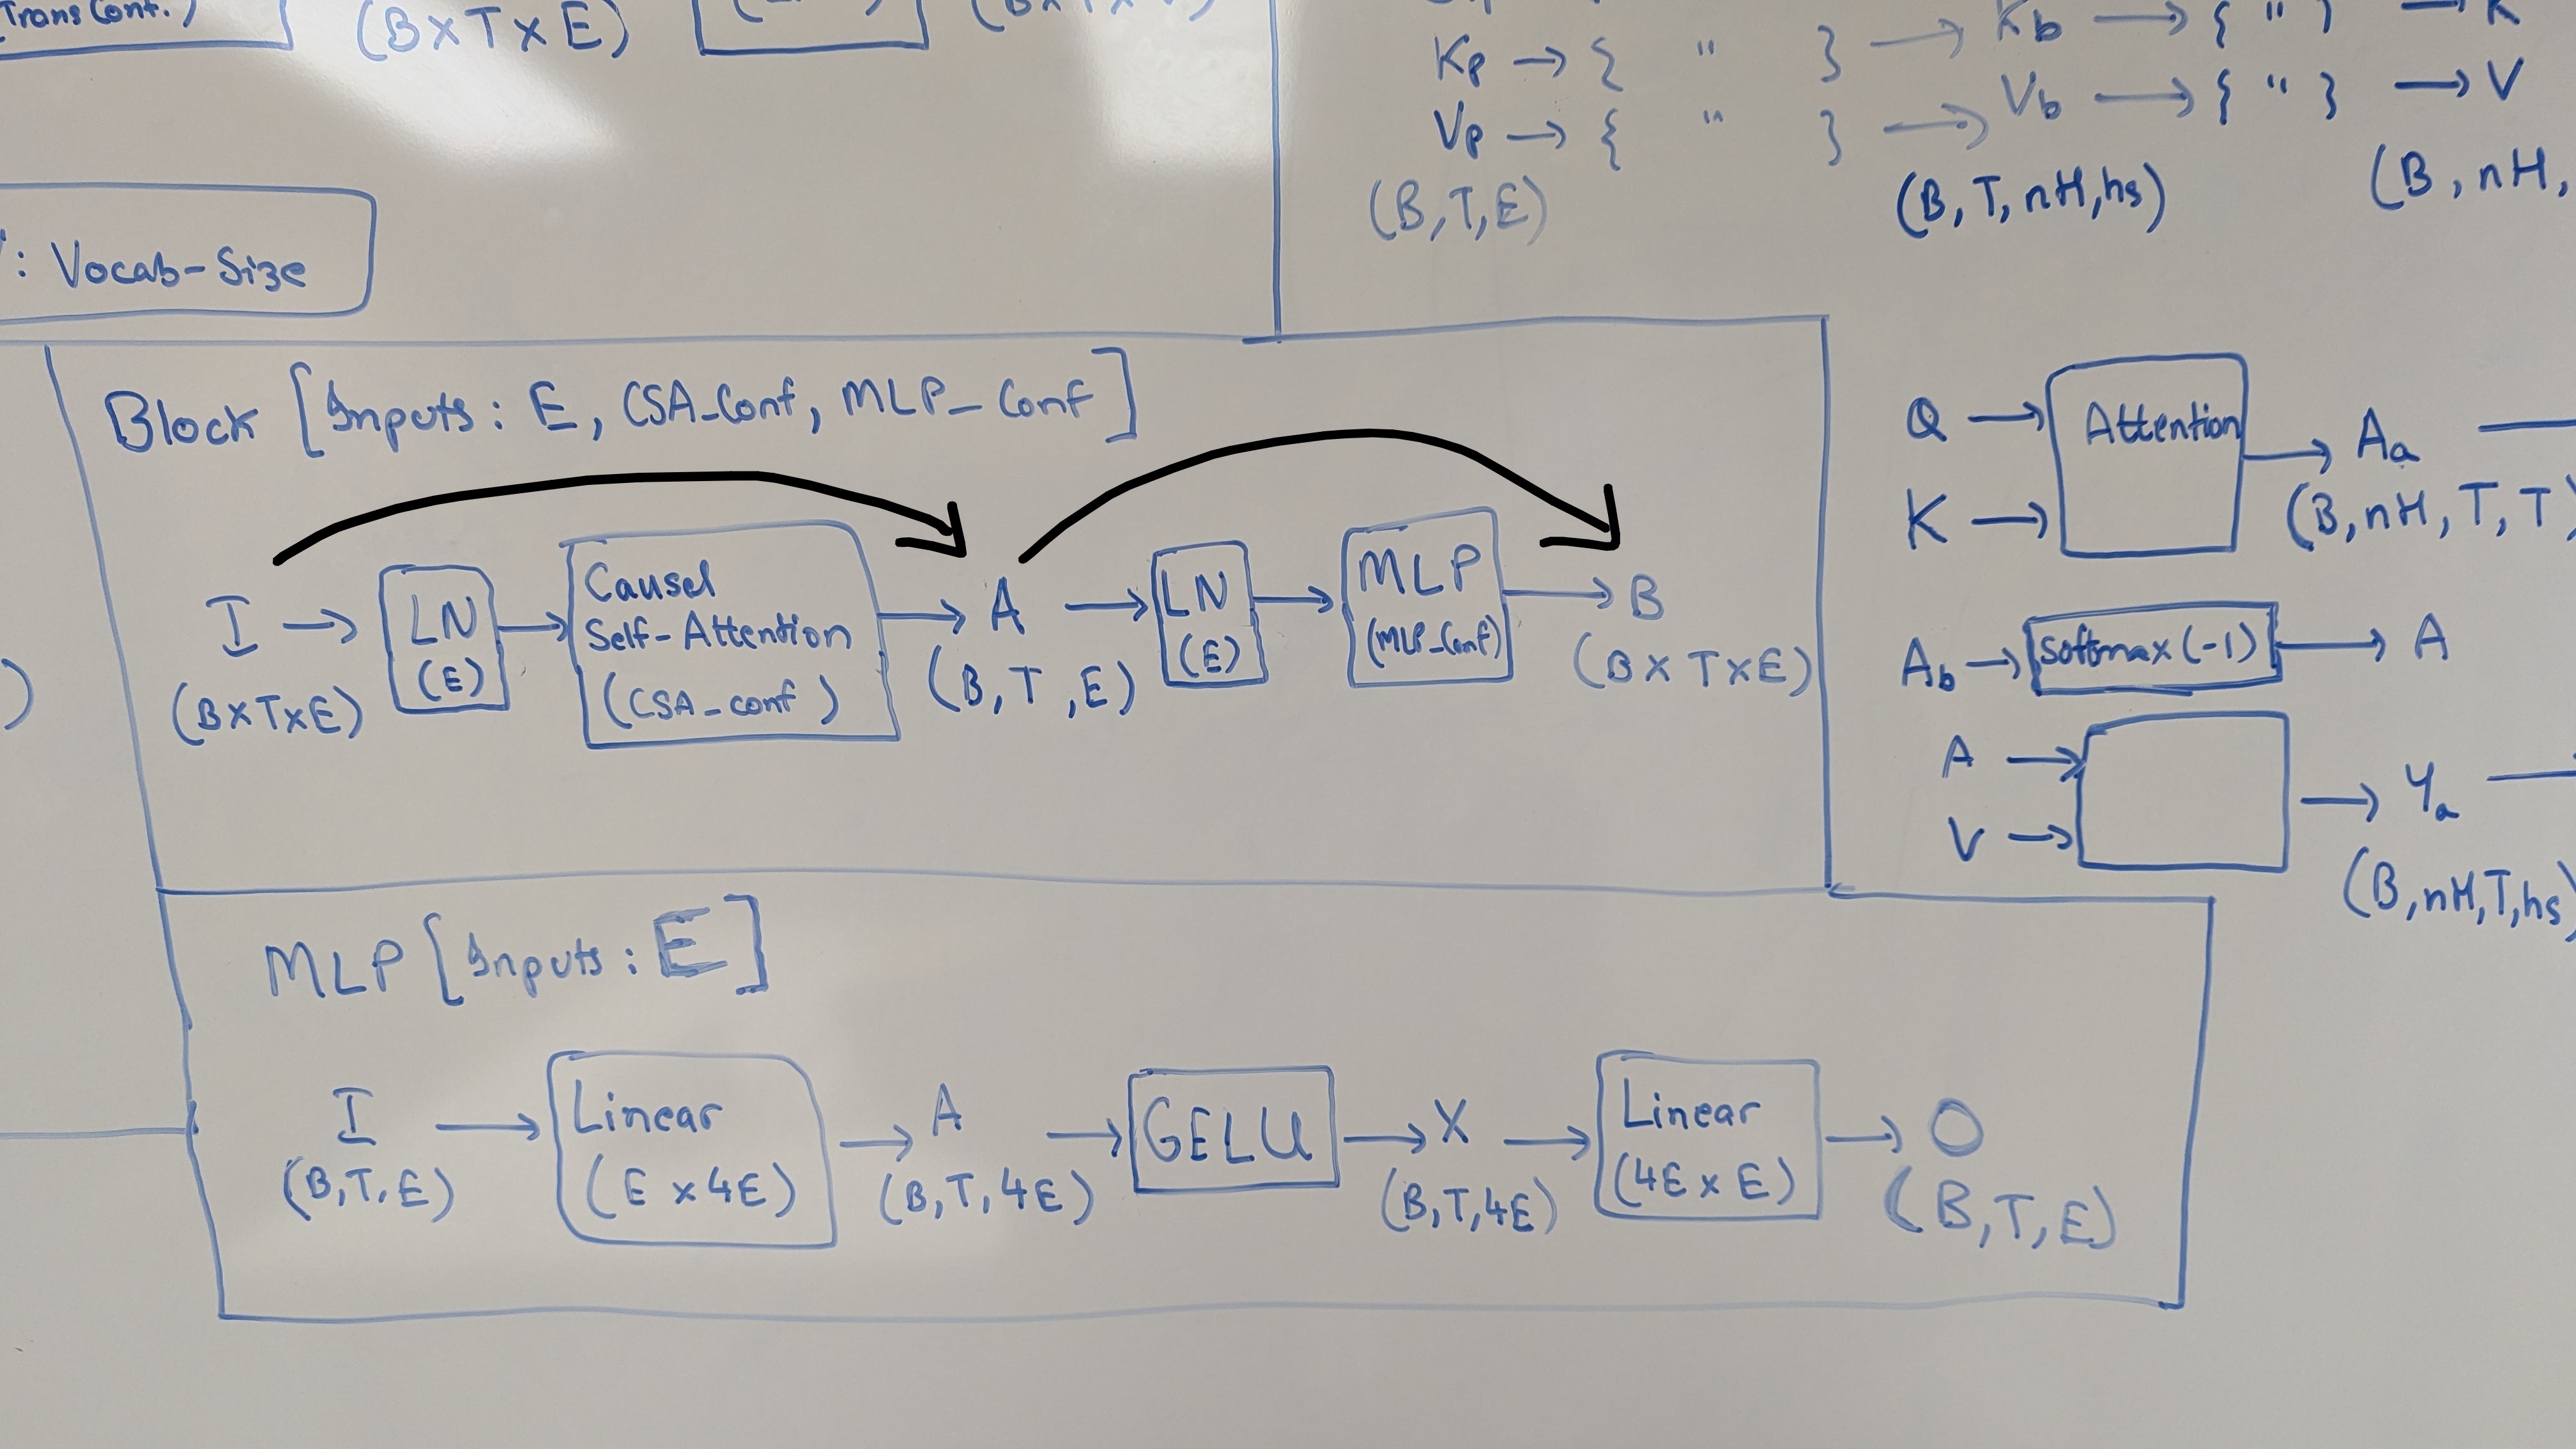 (Trans Conf.)
(B×T×E)
: Vocab-Size
Kp → { " } → Kb → { " } → K
Vp → { " } → Vb → { " } → V
(B,T,E) (B,T,nH,hs) (B, nH,
Block [Inputs: E, CSA_Conf, MLP_Conf]
I → LN (E) → Causel Self-Attention (CSA_conf) → A → LN (E) → MLP (MLP_Conf) → B
(B×T×E) (B,T,E) (B×T×E)
Q →
K →
Attention
→ Aa
(B,nH,T,T)
Ab → Softmax (-1) → A
A →
V →
→ Ya
(B,nH,T,hs)
MLP [Inputs: E]
I → Linear (E×4E) → A → GELU → X → Linear (4E×E) → O
(B,T,E) (B,T,4E) (B,T,4E) (B,T,E)